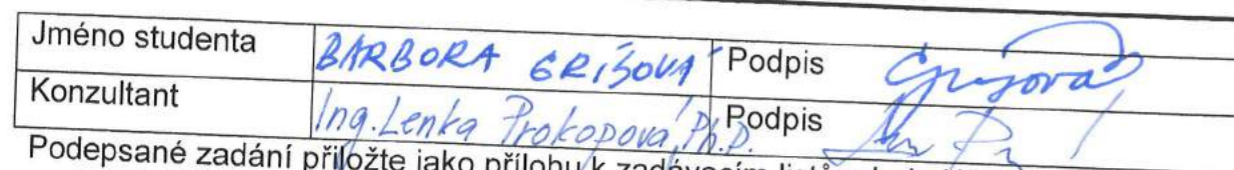 Jméno studenta BARBORA GRÍSOVÁ Podpis Grísová
Konzultant Ing. Lenka Prokopová, Ph.D. Podpis
Podepsané zadání přiložte jako přílohu k zadávacím